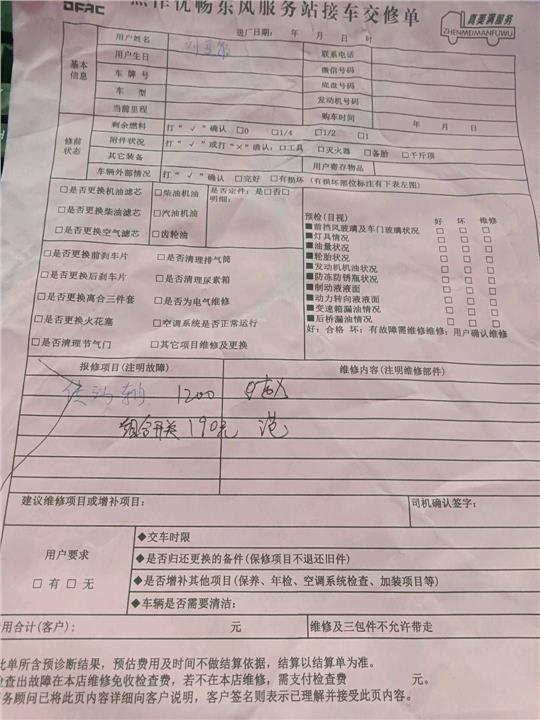 DFAC
优畅东风服务站接车交修单
真美满服务
ZHENMEIMANFUWU
进厂日期： 年 月 日 时
基本信息
用户姓名 联系电话
用户生日 微信号码
车牌号 底盘号码
车型 发动机号码
当前里程 购车时间 年 月 日
修前状态
剩余燃料 打“√”确认 □0 □1/4 □1/2 □1
附件状况 打“√”或打“×”确认：□工具 □灭火器 □备胎 □千斤顶
其它装备 用户寄存物品
车辆外部情况 打“√”确认 □完好 □有损坏（有损坏部位标注有下表左图）
□是否更换机油滤芯 □柴油机油 是否定件：是□否□
明细：
□是否更换柴油滤芯 □汽油机油
□是否更换空气滤芯 □齿轮油
□是否更换前刹车片 □是否清理排气筒
□是否更换后刹车片 □是否清理尿素箱
□是否更换离合三件套 □是否为电气维修
□是否更换火花塞 □空调系统是否正常运行
□是否清理节气门 □其它项目维修及更换
预检（目视） 好 坏 维修
■前挡风玻璃及车门玻璃状况 □ □ □
■灯具情况 □ □ □
■油量状况 □ □ □
■轮胎状况 □ □ □
■发动机机油状况 □ □ □
■防冻防锈瓶状况 □ □ □
■制动液液面 □ □ □
■动力转向液液面 □ □ □
■变速箱漏油情况 □ □ □
■后桥漏油情况 □ □ □
好：合格 坏：有故障需维修维修：用户确认维修
报修项目（注明故障） 维修内容（注明维修部件）
传动轴 1200
组合开关 190元
建议维修项目或增补项目： 司机确认签字：
用户要求
□有 □无
◆交车时限
◆是否归还更换的备件（保修项目不退还旧件）
◆是否增补其他项目（保养、年检、空调系统检查、加装项目等）
◆车辆是否需要清洁：
用合计（客户）： 元 维修及三包件不允许带走
此单所含预诊断结果，预估费用及时间不做结算依据，结算以结算单为准。
检查出故障在本店维修免收检查费，若不在本店维修，需支付检查费 元。
务顾问已将此页内容详细向客户说明，客户签名则表示已理解并接受此页内容。